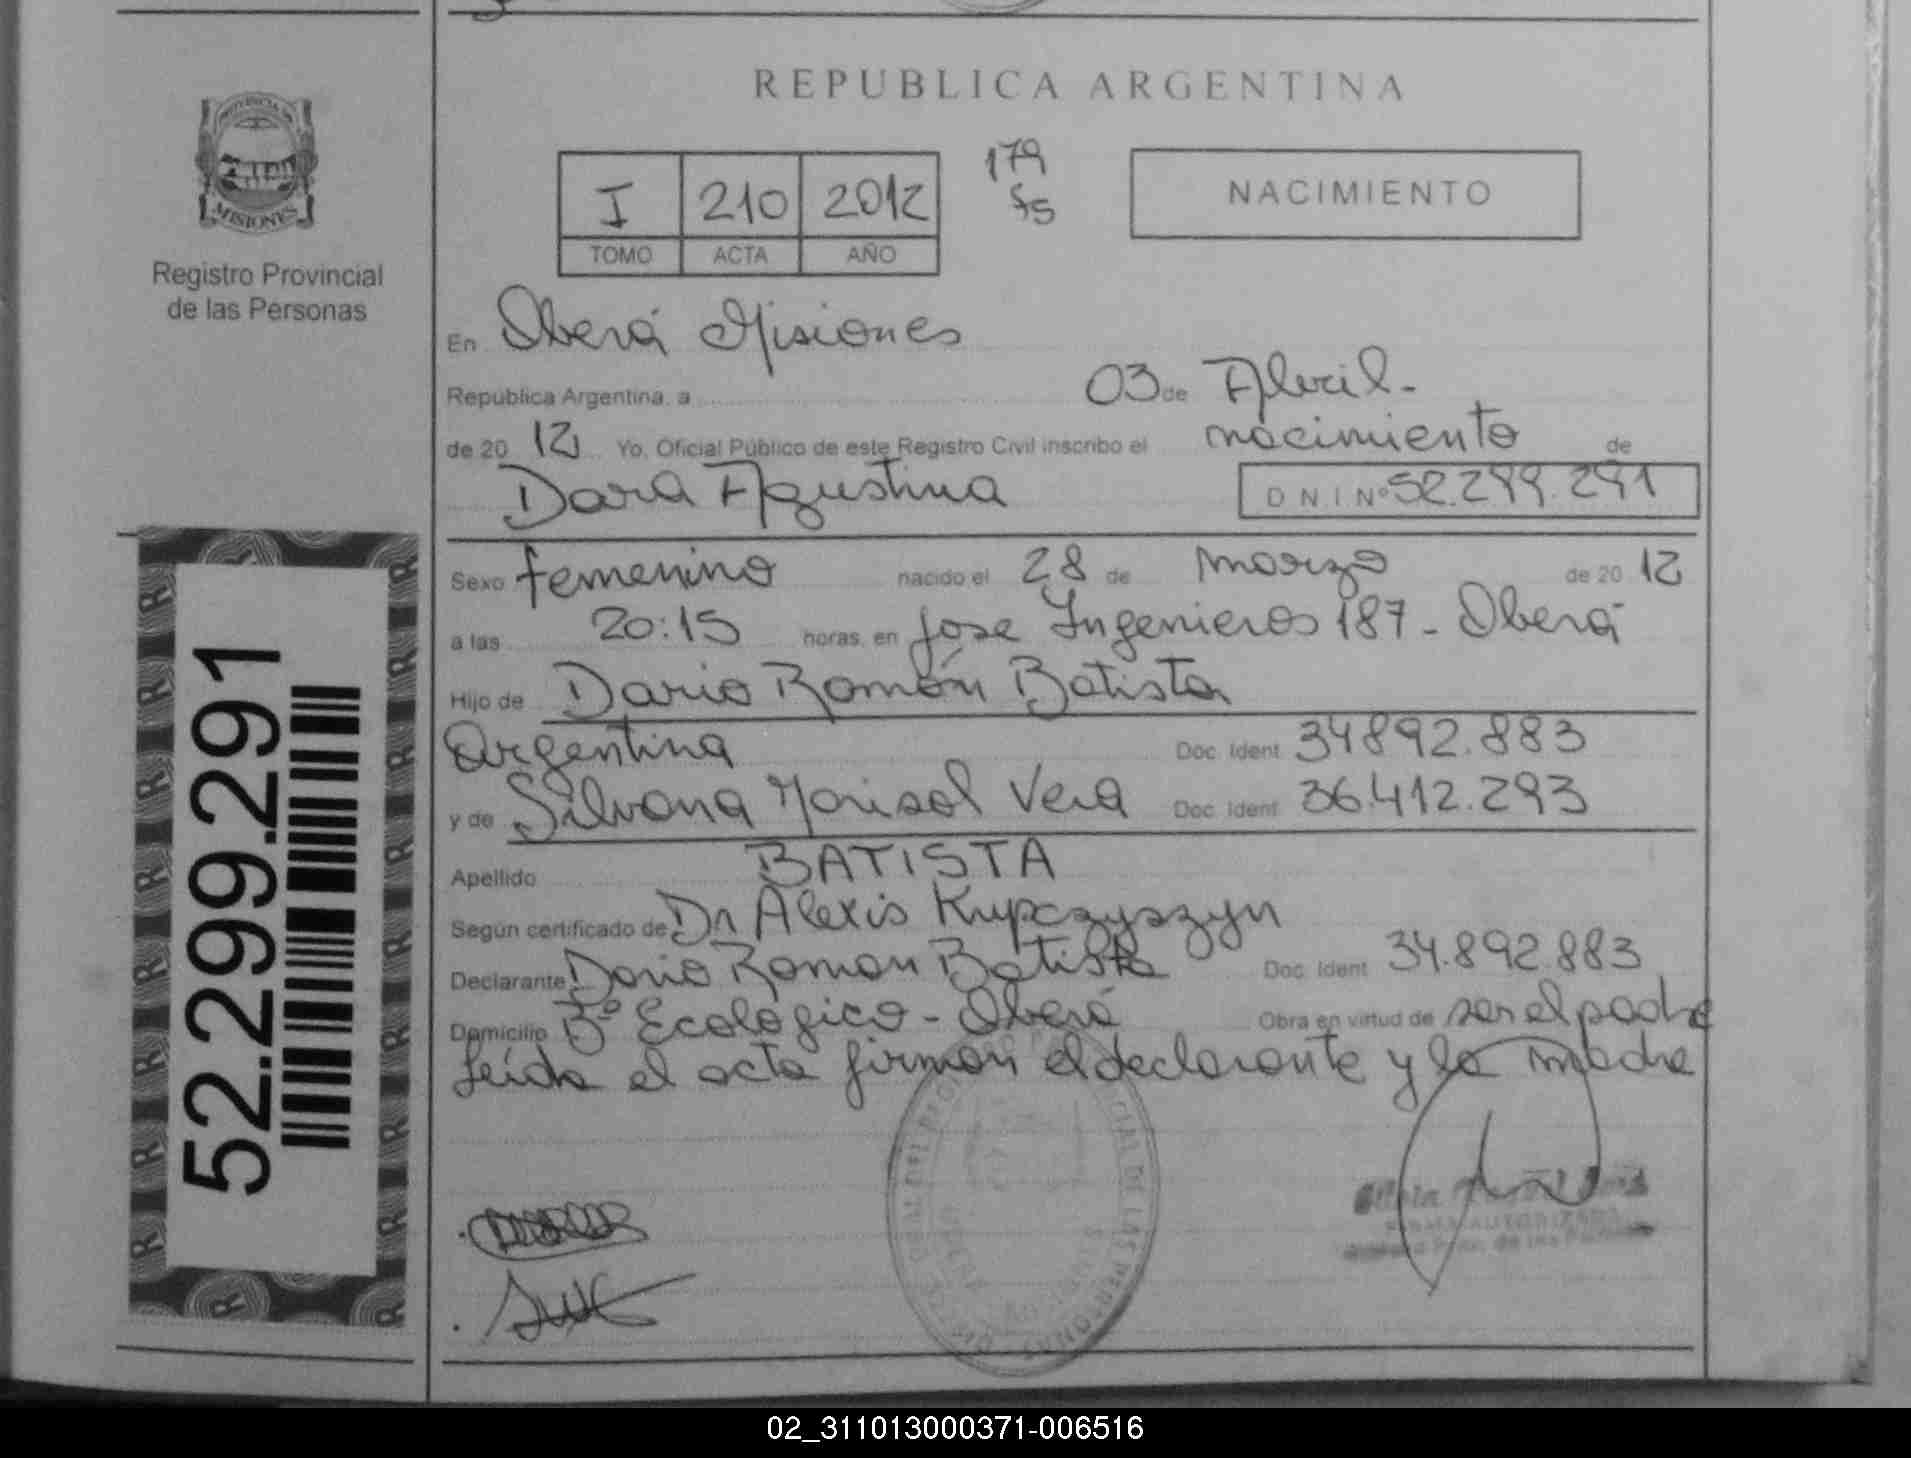 REPUBLICA ARGENTINA
PROVINCIA DE
MISIONES
Registro Provincial
de las Personas
I 210 2012
TOMO ACTA AÑO
179
fs
NACIMIENTO
En Oberá Misiones
República Argentina, a 03 de Abril-
de 20 12 Yo, Oficial Público de este Registro Civil inscribo el nacimiento de
Dara Agustina D N I Nº 52.299.291
Sexo femenino nacido el 28 de marzo de 20 12
a las 20:15 horas, en Jose Ingenieros 187 - Oberá
Hijo de Dario Ramón Batista
Argentina Doc. Ident 34892.883
y de Silvana Marisol Vera Doc. Ident 36.412.293
Apellido BATISTA
Según certificado de Dr Alexis Kupczyszyn
Declarante Dario Ramon Batista Doc. Ident 34.892.883
Domicilio Bº Ecologico - Oberá Obra en virtud de ser el padre
leída el acta firman el declarante y la madre
52.299.291
FIRMA AUTORIZADA
DE LAS PERSONAS
02_311013000371-006516